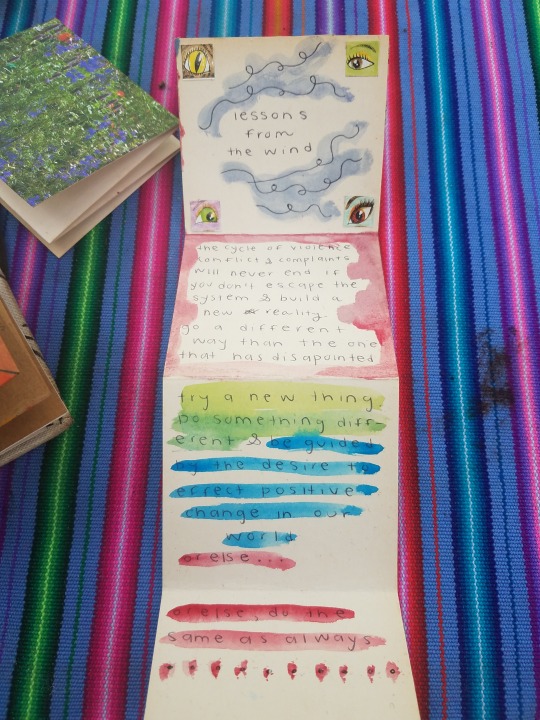 lessons
from
the wind
the cycle of violence
conflict & complaints
will never end if
you don't escape the
system & build a
new reality.
go a different
way than the one
that has disapointed
try a new thing.
Do something diff-
erent & be guided
by the desire to
effect positive
change in our
world
or else...
or else, do the
same as always